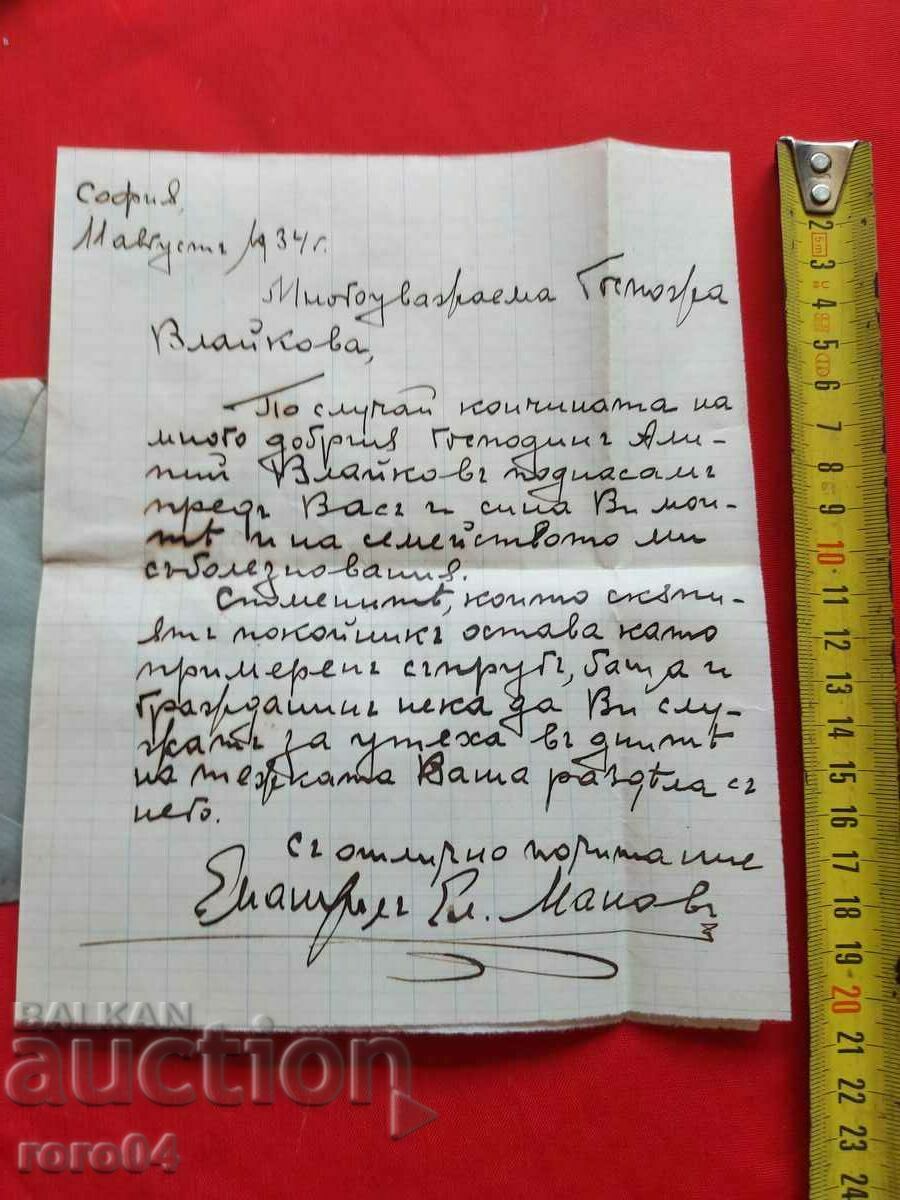 София,
11 августъ 1934 г.
Многоуважаема Госпожа
Влайкова,
По случай кончината на
много добрия Господинъ Али-
пий Влайковъ поднасамъ
предъ Васъ и сина Ви мои-
тѣ и на семейството ми
съболезнования.
Спомените, които скѫпи-
ятъ покойникъ остава като
примеренъ съпругъ, баща и
гражданинъ нека да Ви слу-
жатъ за утеха въ днитѣ
на тежката Ваша раздѣла съ
него.
Съ отлично почитание
Ел. Мановъ
BALKAN
auction
roro04
2
3
4
5
6
7
8
9
10
11
12
13
14
15
16
17
18
19
20
21
22
23
24